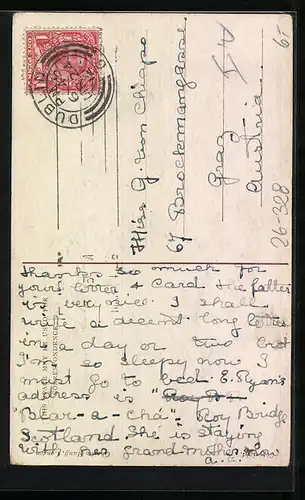 Miss G. von Chiapo
67 Brockmanngasse
Graz
Austria
6/-
26-328
DUBLIN
Thanks so much for
your letter & card the latter
is very nice. I shall
write a decent long letter
in a day or two but
I'm so sleepy now I
must go to bed. E. Ryan's
address is "
"Blar-a-chà" Roy Bridge
Scotland She is staying
with her grandmother